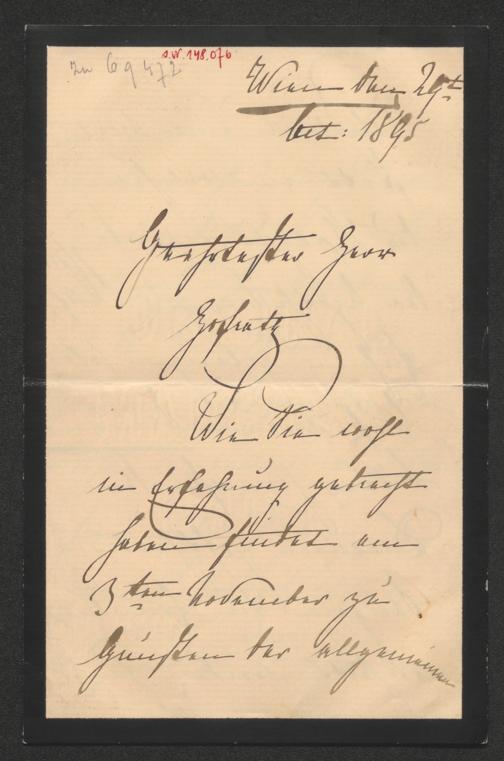 zu 69472
s.W. 148.076
Wien den 29t
Oct: 1895
Geehrtester Herr
Hofrath
Wie Sie wohl
in Erfahrung gebracht
haben findet am
3ten November zu
Gunsten der allgemeinen